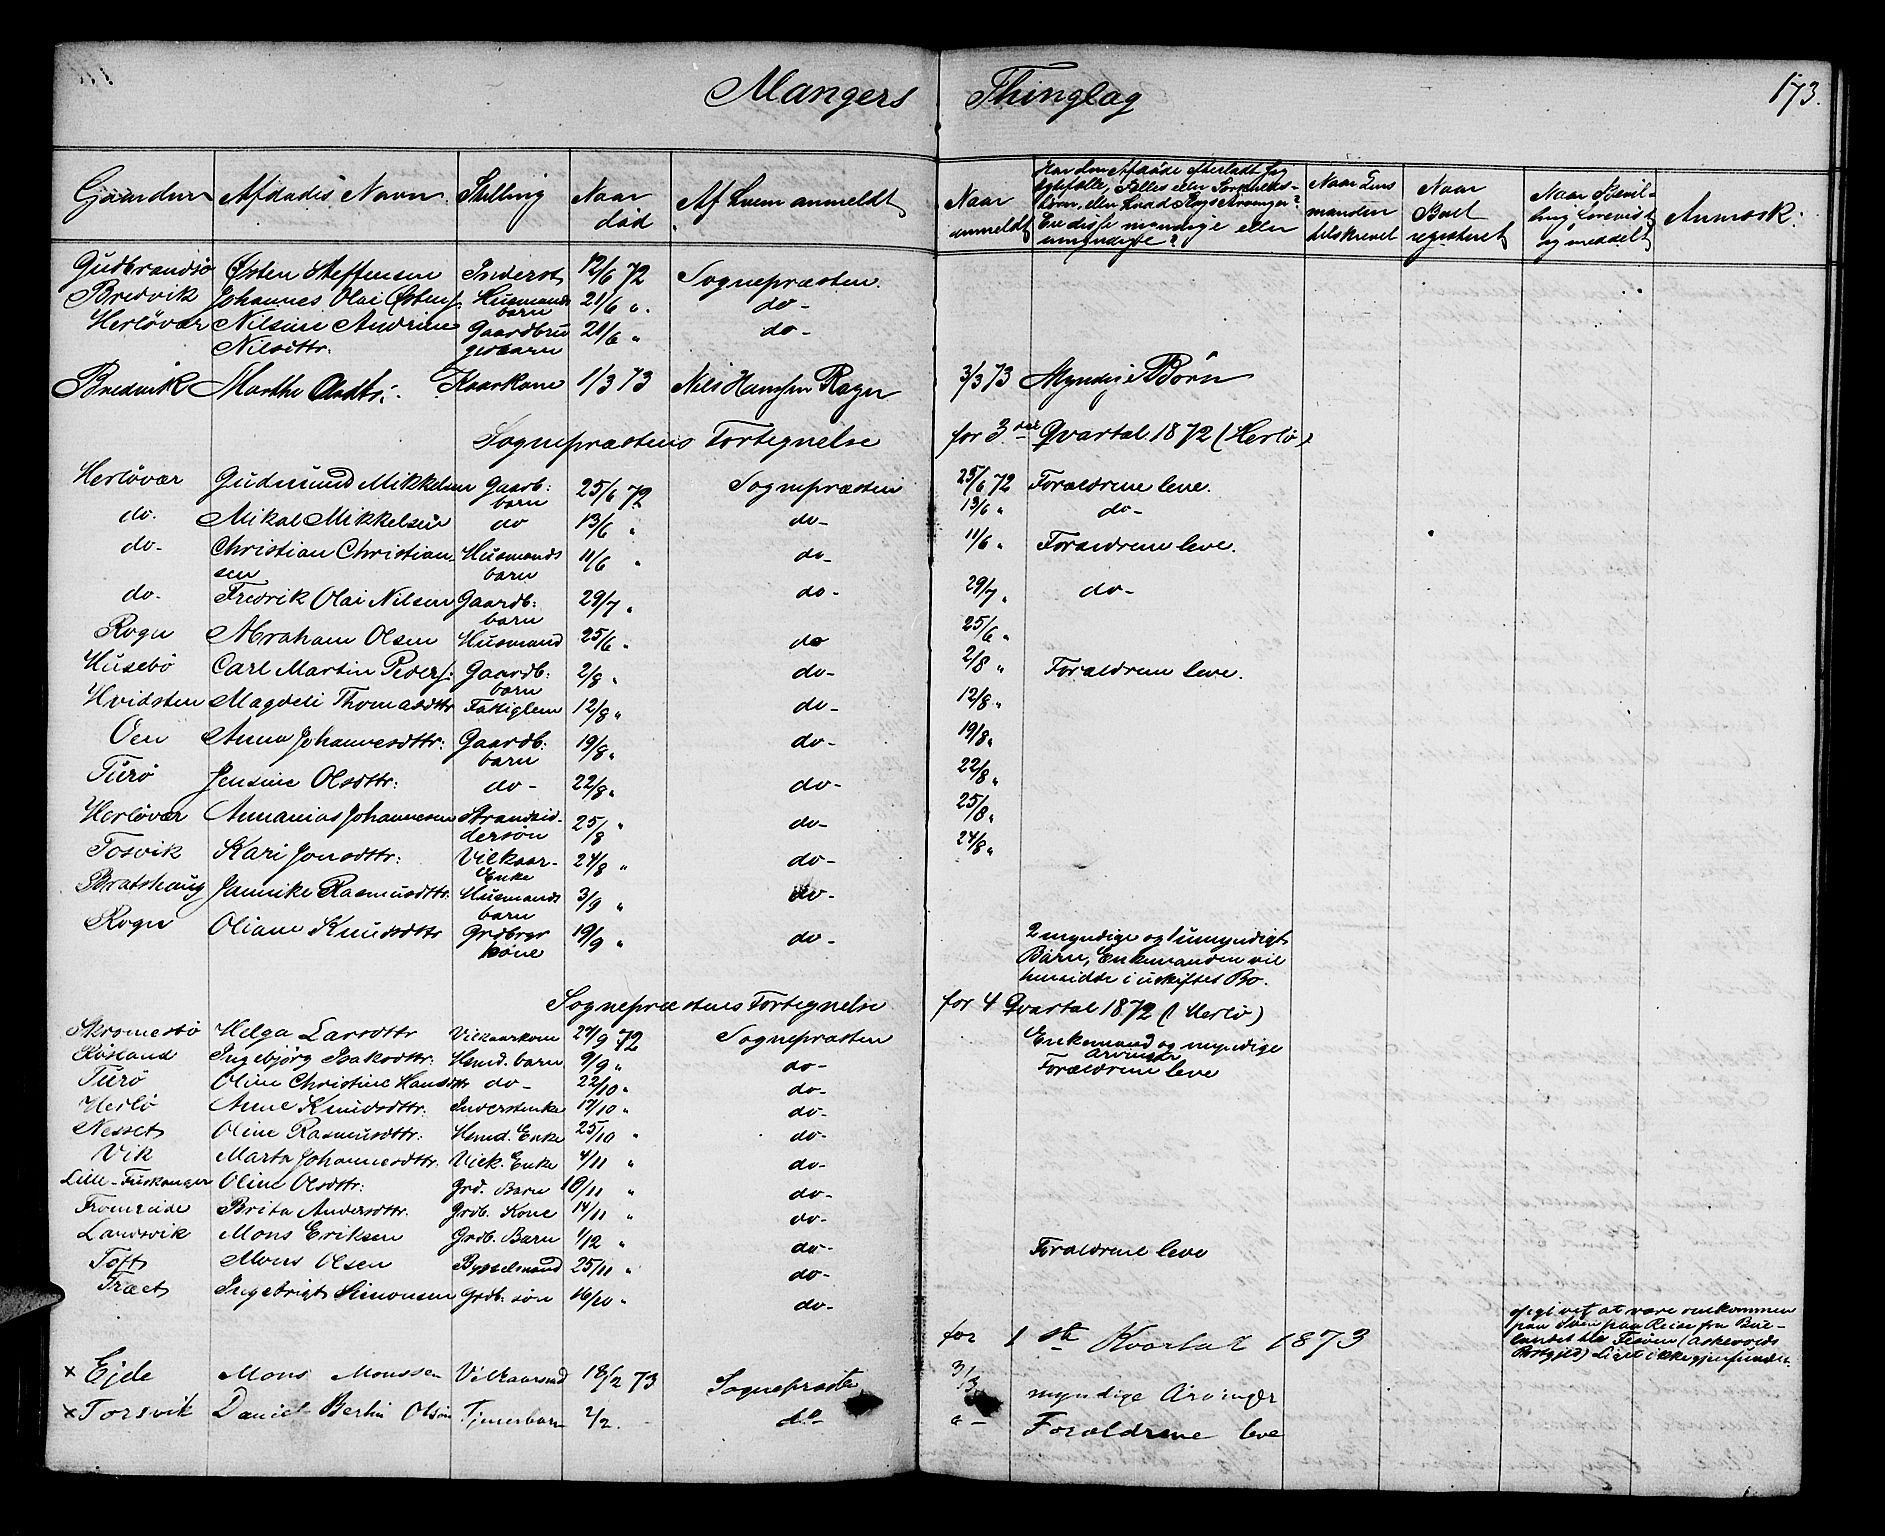 Mangers Thinglag 173.
Gaarden Afdødes Navn Stilling Naar død Af hvem anmeldt Naar anmeldt Har den Afdøde efterladt sig Ægtefælle, Fælles eller Særkuldsbørn, eller hvad Slags Arvinger? Ere disse myndige eller umyndige? Naar Lensmanden tilskrevet Naar Boet registeret Naar Bevilling og meddelt Anmærk:
Gudbrandsø Østen Steffensen Inderst 12/6 72 Sognepræsten
Bredvik Johannes Olai Østens: Husmands barn 21/6 " do-
Herløvær Nilsine Andrine Nilsdttr: Gaardbrugersbarn 21/6 " do-
Bredvik Marthe Oladtr: Kaarkone 1/3 73 Nils Hanssen Rogn 3/3 73 Myndige Børn
Sognepræstens Fortegnelse for 3die Qvartal 1872 (Herlø)
Herløvær Gudmund Mikkelsen Gaardb: barn 25/6 72 Sognepræsten 25/6 72 Forældrene leve.
do. Mikal Mikkelsen do 13/6 " do- 13/6 " do-
do- Christian Christiansen Husmands barn 11/6 " do- 11/6 " Forældrene leve.
do- Fredrik Olai Nilsen Gaardb: barn 29/7 " do- 29/7 " do-
Rogn Abraham Olsen Husmand 25/6 " do 25/6 "
Husebø Carl Martin Peders: Gaardb: barn 2/8 " do- 2/8 " Forældrene leve.
Hvidsten Magdeli Thomasdttr Fatiglem 12/8 " do- 12/8 "
Øen Anna Johannesdttr: Gaardb: barn 19/8 " do- 19/8 "
Turø Jensine Olsdttr: do- 22/8 " do- 22/8 "
Herløvær Annanias Johannesen Strandsiddersøn 25/8 " do- 25/8 "
Tosvik Kari Jonsdttr: Vilkaar-Enke 24/8 " do- 24/8 "
Bratshaug Jannike Rasmusdttr: Husmands barn 3/9 " do-
Rogn Oliane Knudsdttr Grdbrgr kone 19/9 " do- 2 myndige og 1 umyndigt
Børn, Enkemanden vil
hensidde i uskiftet Bo.
Sognepræstens Fortegnelse for 4 Qvartal 1872 (Herlø)
Skromesbø Helga Larsdttr Vilkaarkone 27/9 72 Sognepræsten Enkemand og myndige Arvinger
Røsland Ingebjørg Isaksdttr: Hsmd. barn 9/9 " do- Forældrene leve
Turø Oline Christine Hansdttr do- 22/10 " do-
Herlø Anne Knudsdttr: Inderstenke 17/10 " do-
Nesset Oline Rasmusdttr: Hsmd. Enke 25/10 " do-
Vik Marta Johannesdttr: Vilk. Enke 4/11 " do-
Lille-Fuskanger Oline Olsdttr: Grd. Barn 10/11 " do-
Fromreide Brita Andersdttr. Grdb. Kone 14/11 " do-
Landsvik Mons Eriksen Grdb. Barn 1/12 " do- Forældrene leve
Toft Mons Olsen Bysselmand 25/11 " do-
Træet Ingebrigt Simonsen Grdb: søn 16/10 " do- opgivet at være omkommen
paa Søen paa Reise fra Bue-
landet til (Askevolds
Prstgjeld) Liget ikke gjenfundet.
for 1ste Kvartal 1873
x Ejde Mons Monssen Vilkaarsmd 18/2 73 Sognepræsten 3/3 myndige Arvinger
x Torsvik Daniel Bertin Olsen Tjenerbarn 2/2. - do- Forældrene leve